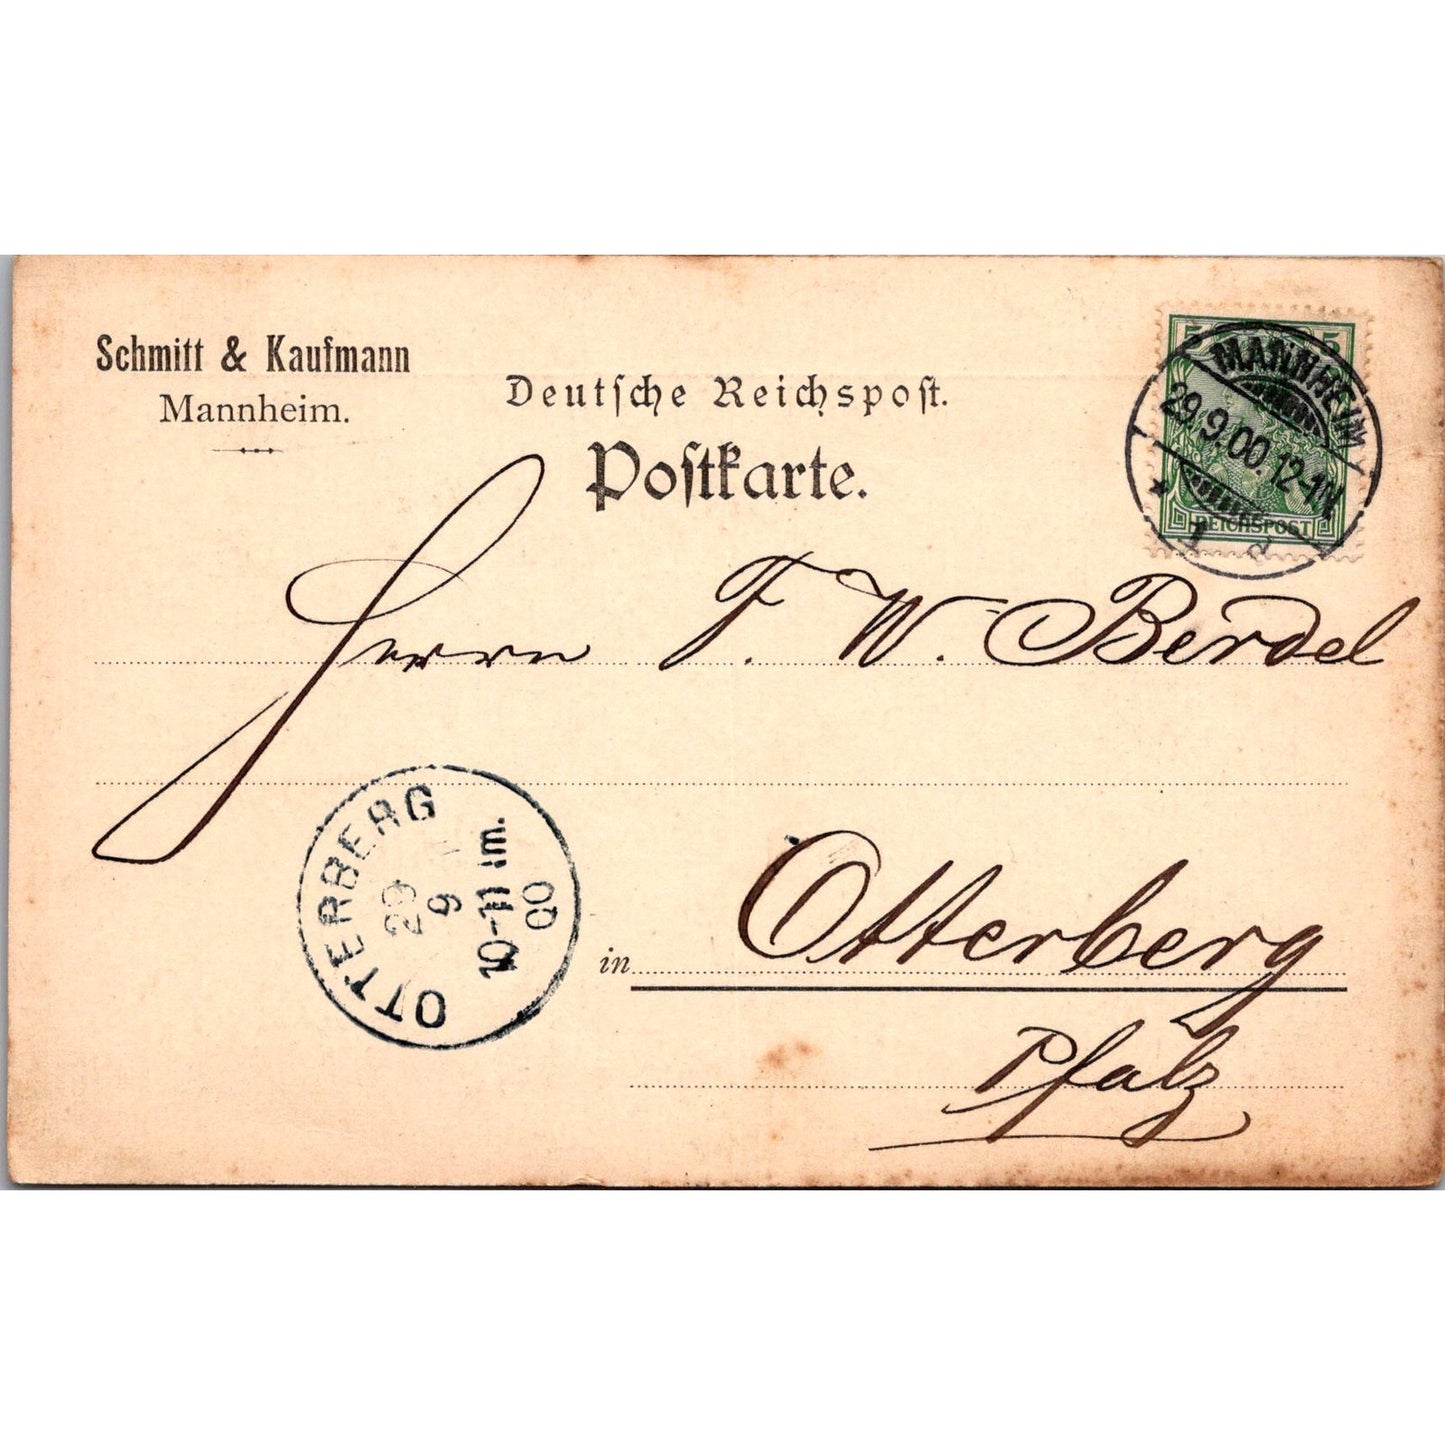 Schmitt & Kaufmann
Mannheim.
Deutſche Reichspoſt.
Poſtkarte.
5 5
MANNHEIM
29.9.00.12-1N
REICHSPOST
Herrn F. W. Berdel
OTTERBERG
29
9
10-11 Vm.
00
in Otterberg
Pfalz